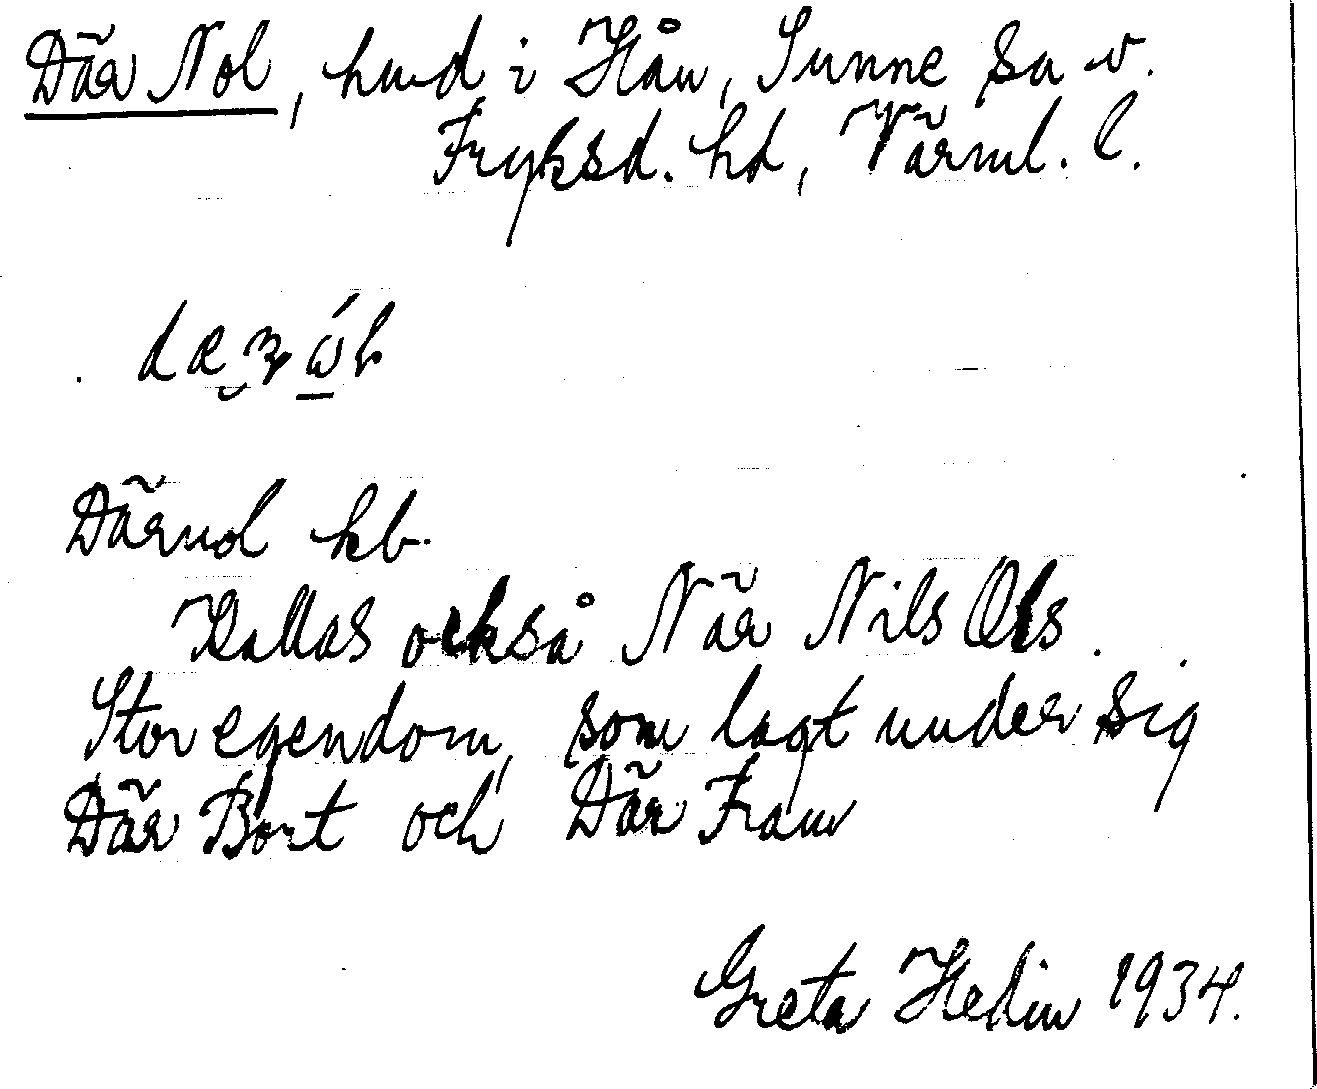 Där Nol, hmd i Hån, Sunne sn v.
Fryksd. hd, Värml. l.
Därnol kb.
Kallas också När Nils Ols.
Stor egendom, som lagt under sig
Där Bort och Där Fram
Greta Hedin 1934.